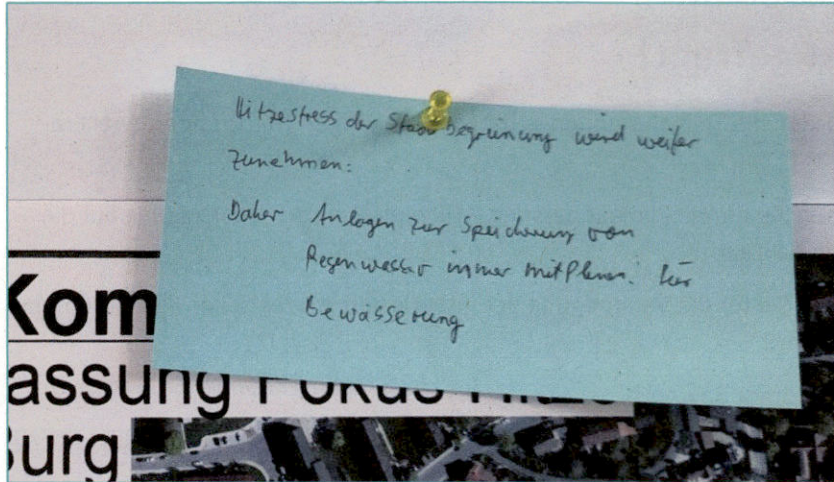 Hitzestress der Stadtbegrünung wird weiter
zunehmen:
Daher Anlagen zur Speicherung von
Regenwasser immer mitplanen! für
Bewässerung
Kom
assung Fokus Hitze
Burg